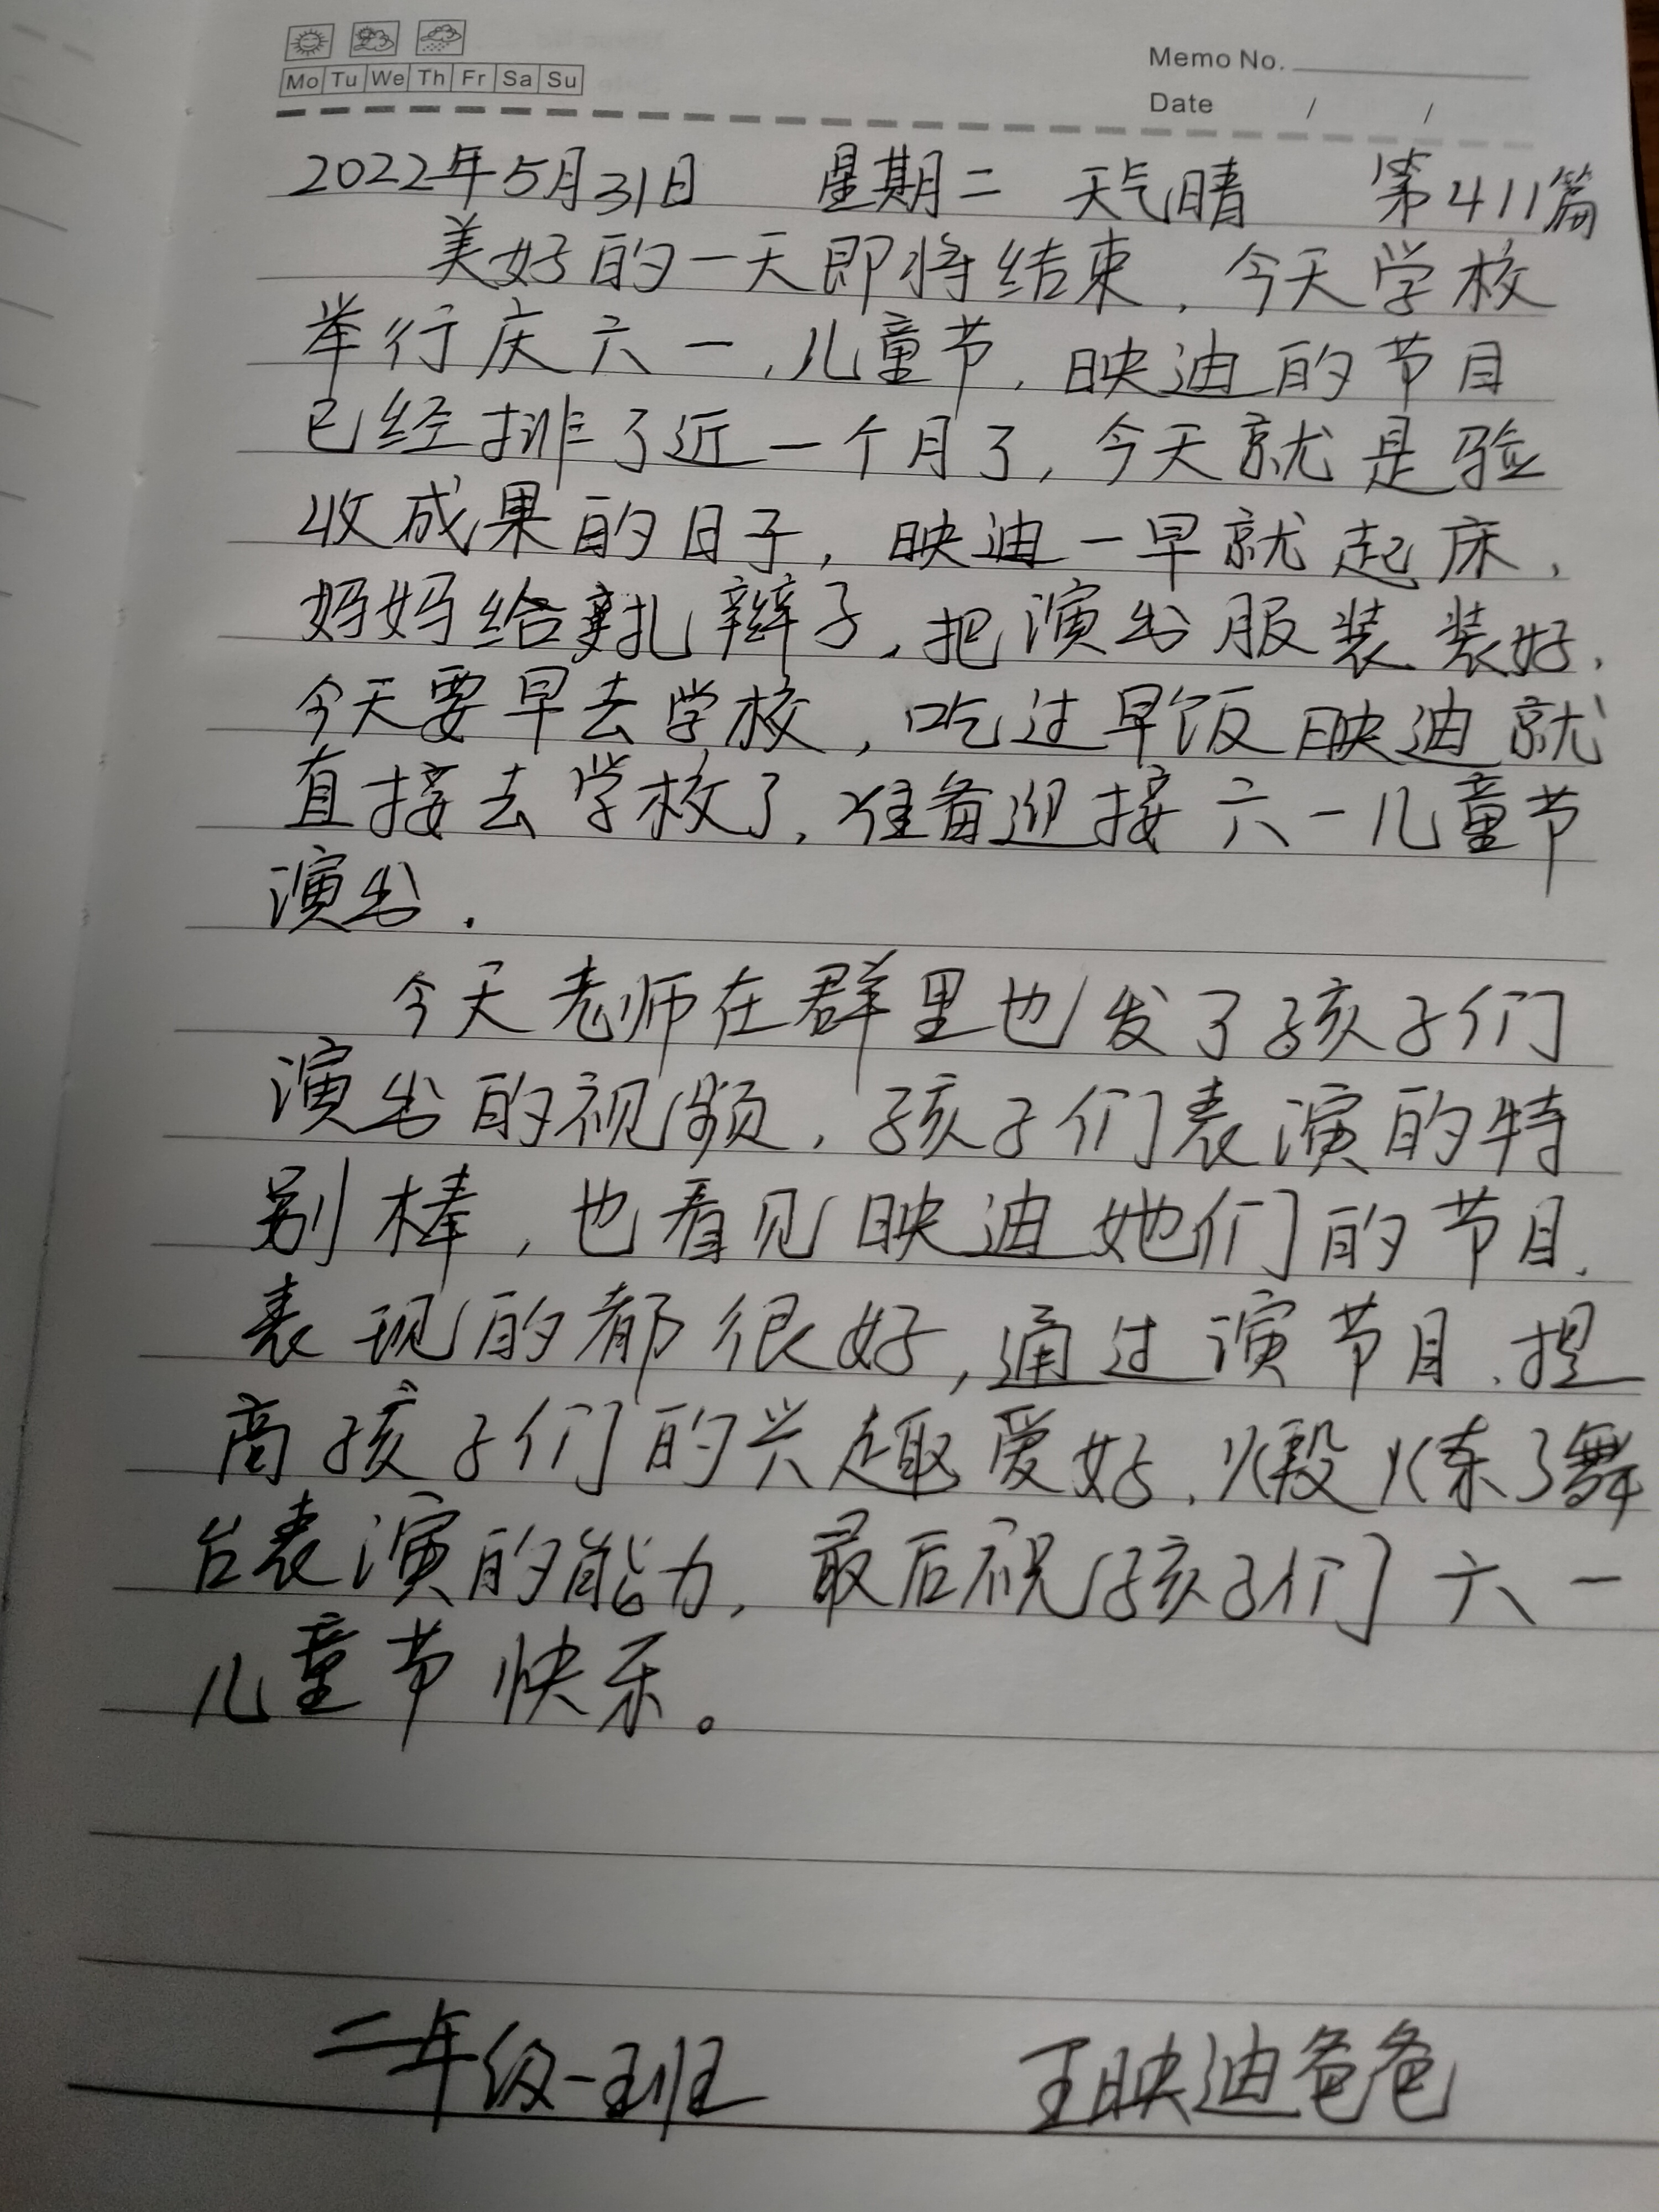 Memo No.
Mo Tu We Th Fr Sa Su
Date / /
2022年5月31日 星期二 天气晴 第411篇
美好的一天即将结束，今天学校
举行庆六一，儿童节，映迪的节目
已经排了近一个月了，今天就是验
收成果的日子，映迪一早就起床，
妈妈给扎辫子，把演出服装装好，
今天要早去学校，吃过早饭映迪就
直接去学校了，准备迎接六一儿童节
演出.
今天老师在群里也发了孩子们
演出的视频，孩子们表演的特
别棒，也看见映迪她们的节目，
表现的都很好，通过演节目，提
高孩子们的兴趣爱好，煅炼了舞
台表演的能力，最后祝孩子们六一
儿童节快乐。
二年级一班 王映迪爸爸